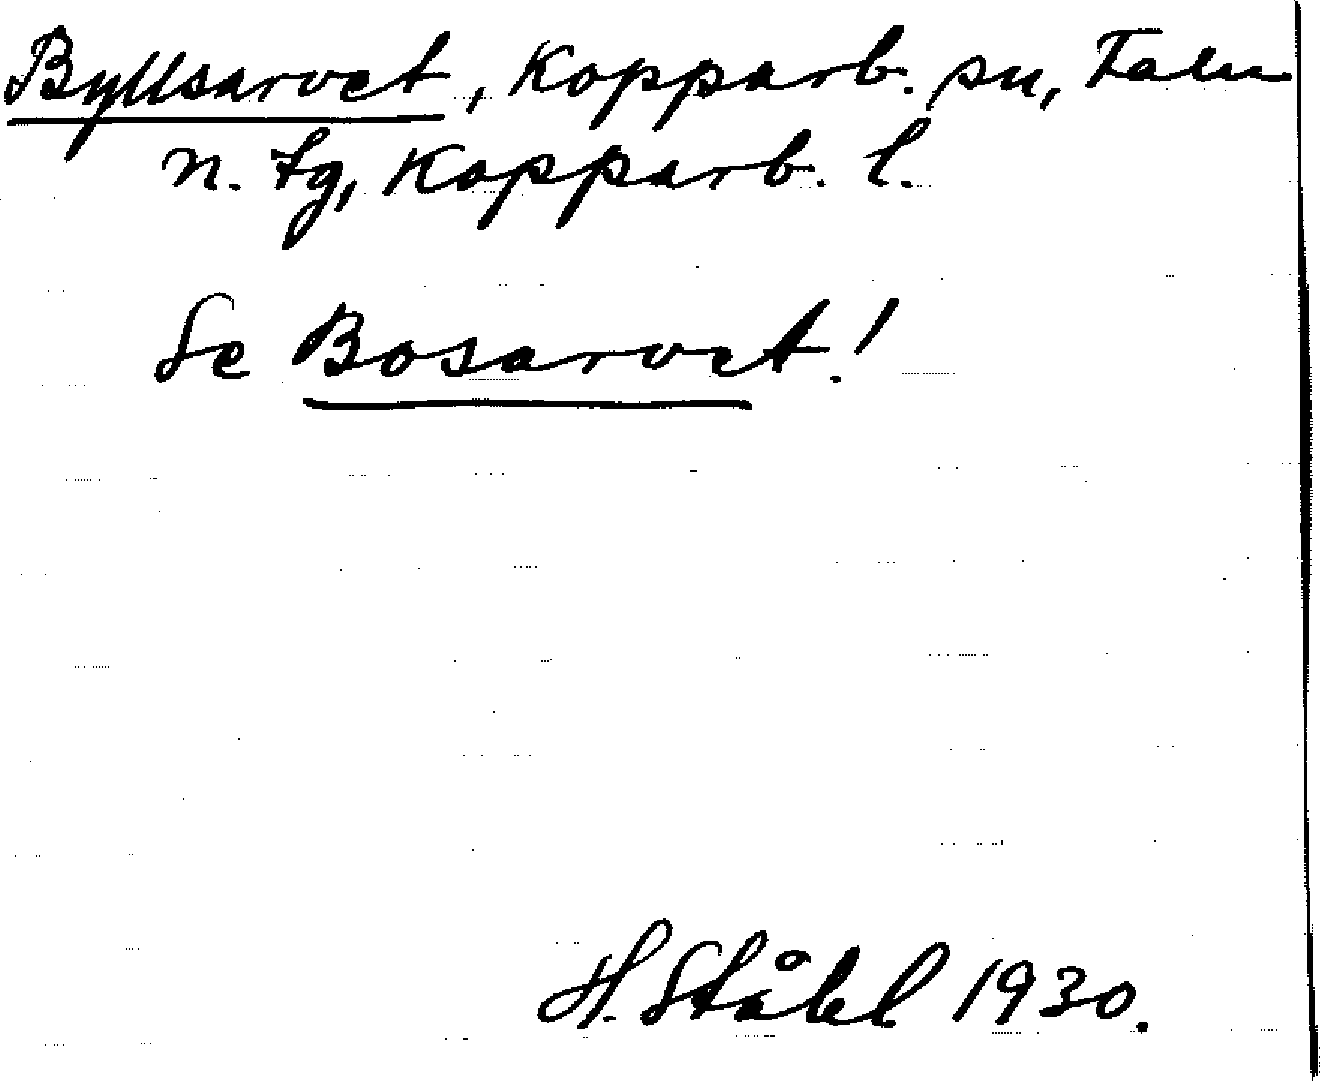 Byllsarvet, Kopparb. sn, Falu
n. tg, Kopparb. l.
Se Bosarvet!
H. Ståhl 1930.